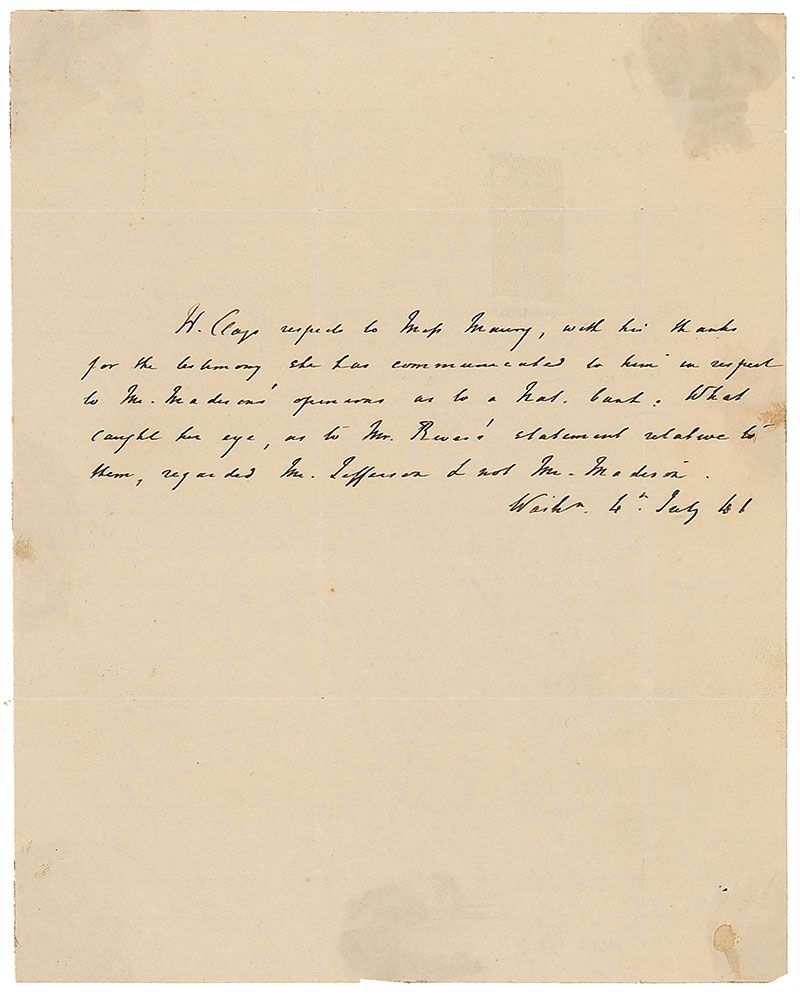 H. Clays respects to Miss Maury, with his thanks
for the testimony she has communicated to him in respect
to Mr. Madison's opinions as to a Nat. bank. What
caught her eye, as to Mr. Rives's statement relative to
them, regarded Mr. Jefferson & not Mr. Madison.
Washn. 4th. July 41